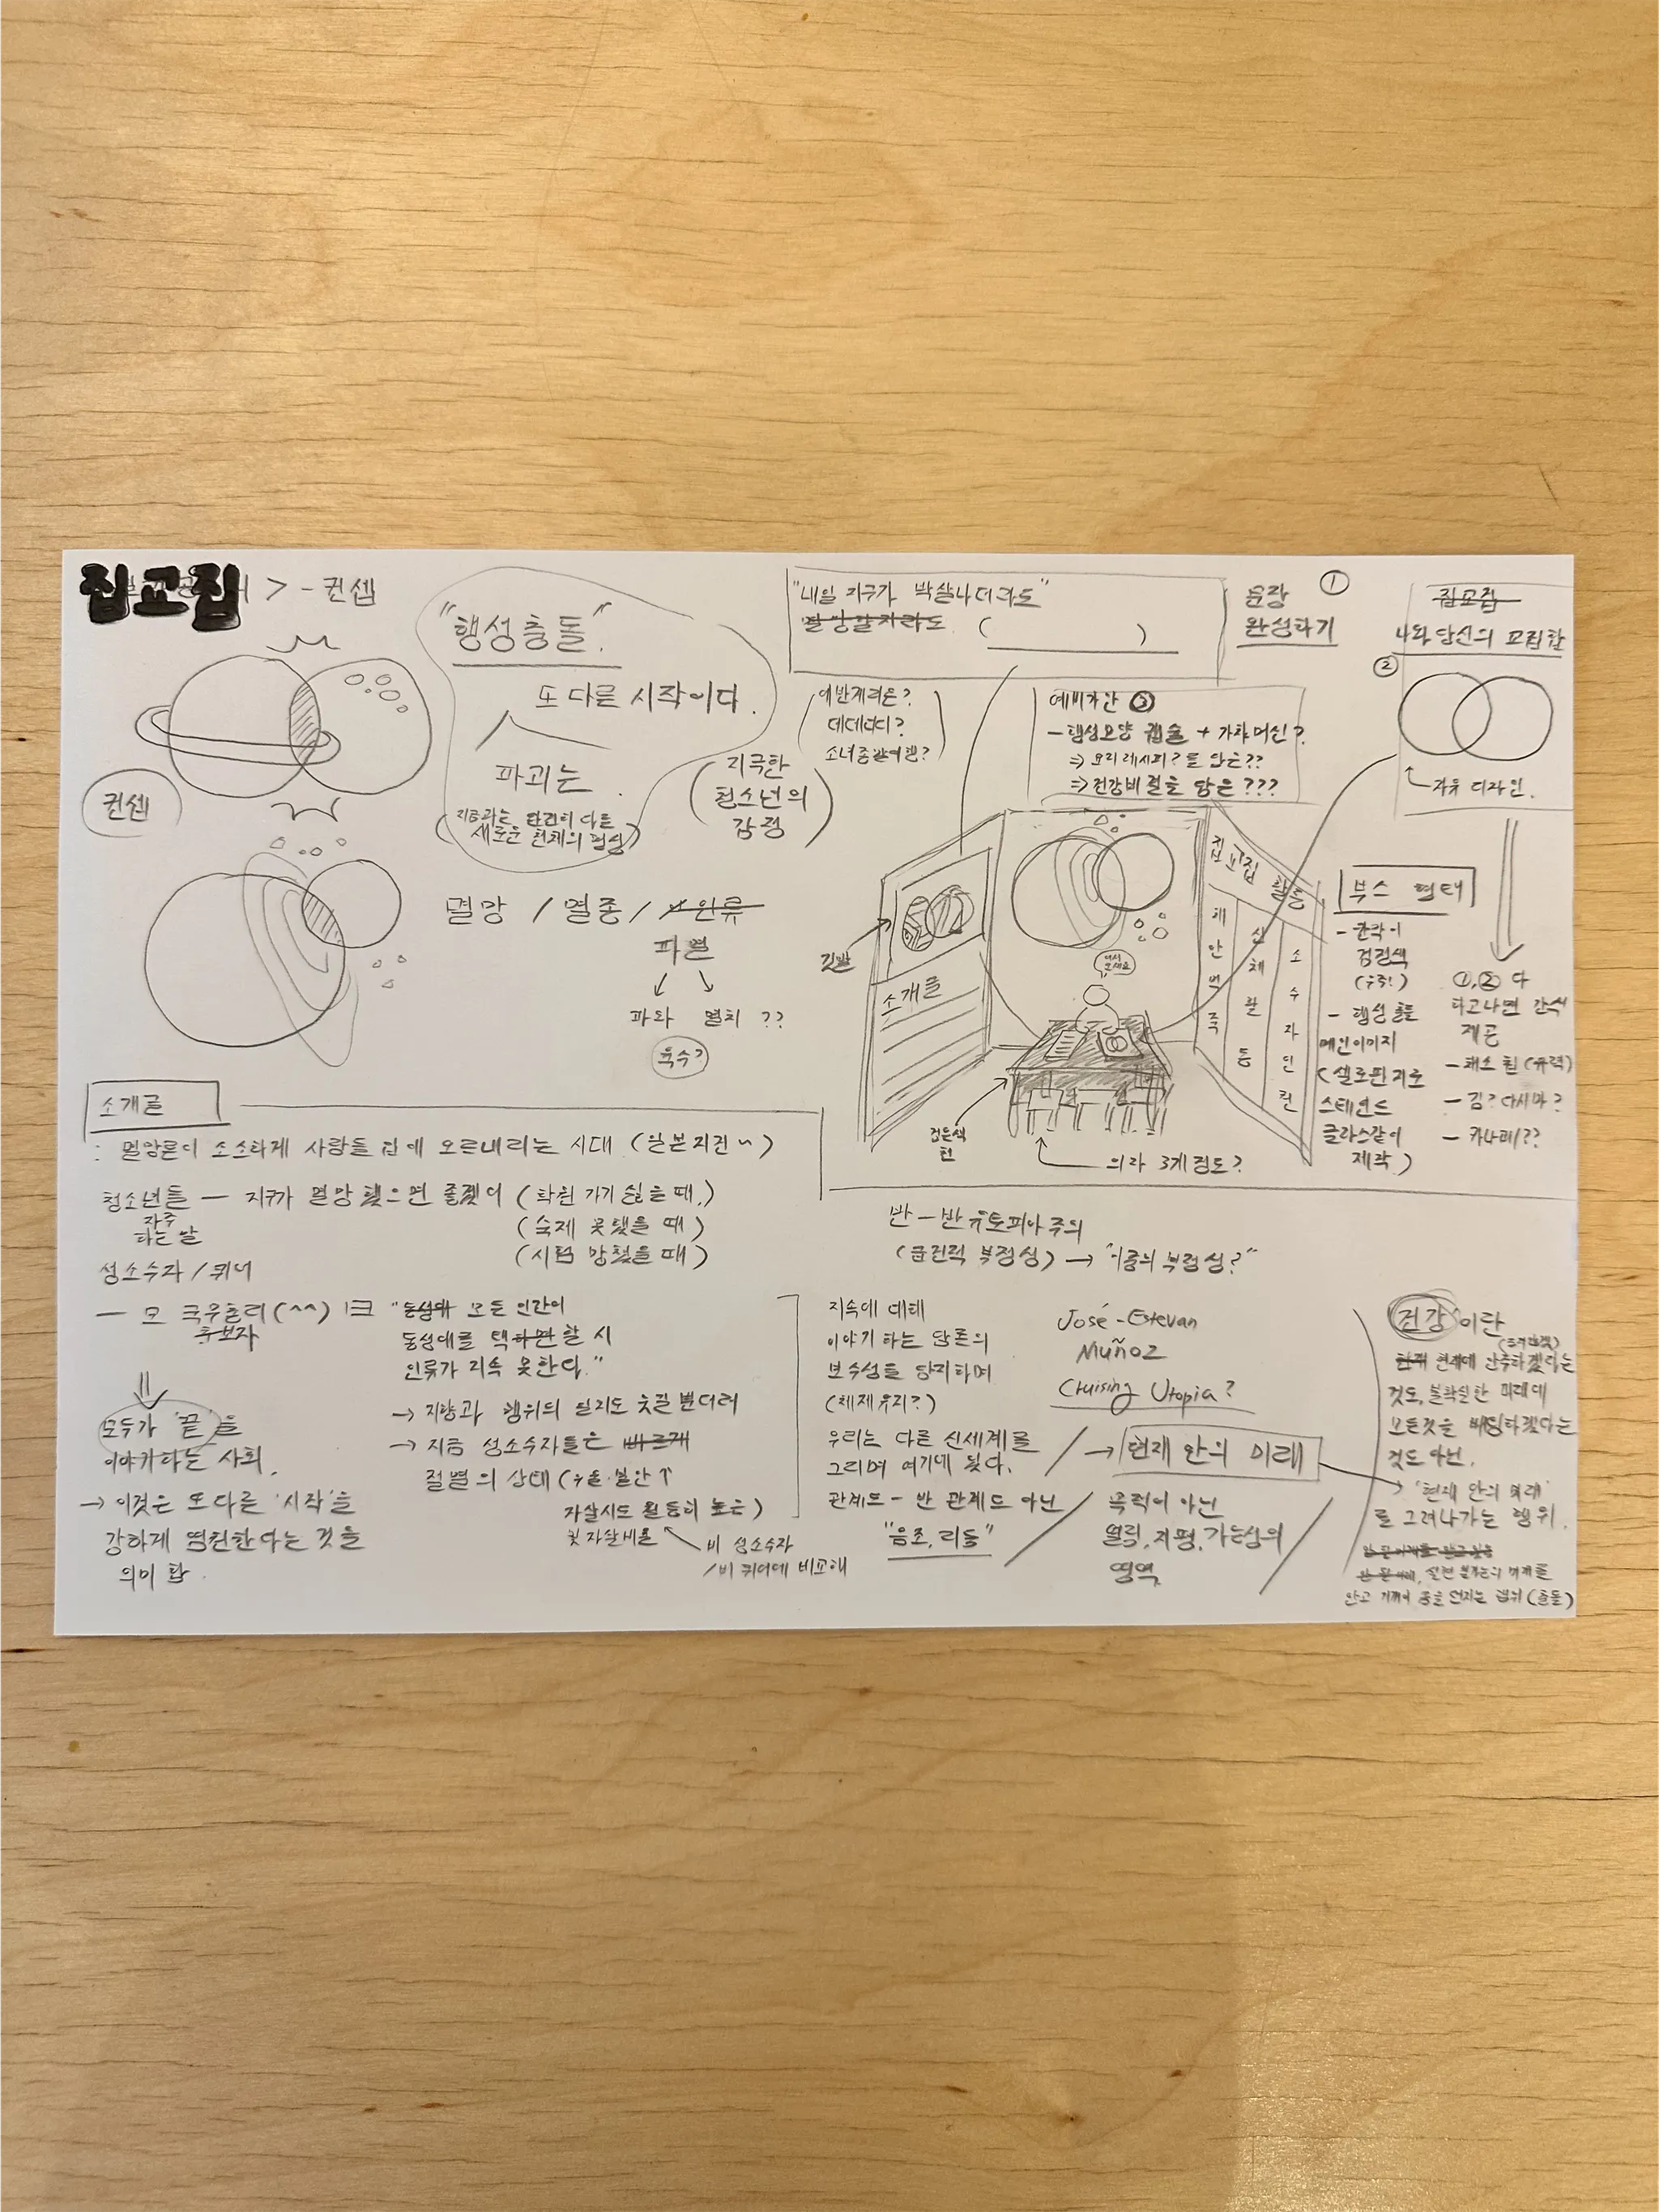 집교집 > - 컨셉
"행성충돌"
또 다른 시작이다.
파괴는
새로운 천체의 형성)
컨셉
(지극한
청소년의
감정)
멸망 / 멸종 / 人인류
파멸
파와 멸치 ??
육수?
"내일 지구가 박살나더라도"
멸망할지라도 ( )
문장 ①
완성하기
에반게리온?
데데디디?
소녀종말여행?
예비가안 ③
- 행성모양 캡슐 + 가챠머신?
⇒ 요리레시피?를 담은??
⇒ 건강비결을 담은 ???
집교집
나와 당신의 교집합
②
자유 디자인.
깃발
소개글
집교집 활동
체
활
동
소
수
자
인
권
검은색
천
의자 3개 정도?
부스 형태
검정색
(우주!)
- 행성충돌
메인이미지
(셀로판지로
스테인드
글라스같이
제작)
①,② 다
하고나면 간식
제공
- 채소 칩
- 김? 다시마?
- 카나페??
소개글
: 멸망론이 소소하게 사람들 입에 오르내리는 시대 (일본지진~)
청소년들 — 지구가 멸망 했으면 좋겠어 (학원 가기 싫을 때.)
자주
하는 말
(숙제 못했을 때)
(시험 망쳤을 때)
성소수자 / 퀴어
— 모 크우촐리(^^)
후보자
"동성애 모든 인간이
동성애를 택하면 할 시
인류가 지속 못한다."
→ 지향과 행위의 일치도 웃길 뿐더러
→ 지금 성소수자들은 빠르게
절멸의 상태 (우울·불안↑
자살시도 월등히 높은)
및 자살비율
비 성소수자
/비 퀴어에 비교해
모두가 '끝'을
이야기하는 사회.
→ 이것은 또다른 '시작'을
강하게 염원한다는 것을
의미 함.
반-반유토피아주의
(급진적 부정성) → "이중의 부정성?"
지속에 대해
이야기하는 담론의
보수성을 당지하며
(체제유지?)
우리는 다른 신세계를
그리며 여기에 왔다.
관계도 - 반 관계도 아닌
"음조, 리듬"
José-Estevan
Muñoz
Cruising Utopia?
→ 현재 안의 미래
목적이 아닌
열림, 지평, 가능성의
영역
건강 이란
현재 현재에 안주하겠다는
것도, 불확실한 미래에
모든것을 베팅하겠다는
것도 아닌.
→ '현재 안의 미래'
를 그려나가는 행위.
안고 기꺼이 몸을 던지는 행위 (충돌)